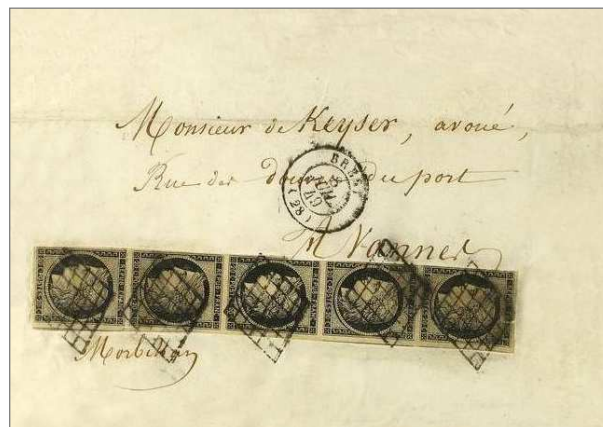 Monsieur de Keyser, avoué,
Rue des du port
BREST
8
49
(28)
à Vannes
Morbihan